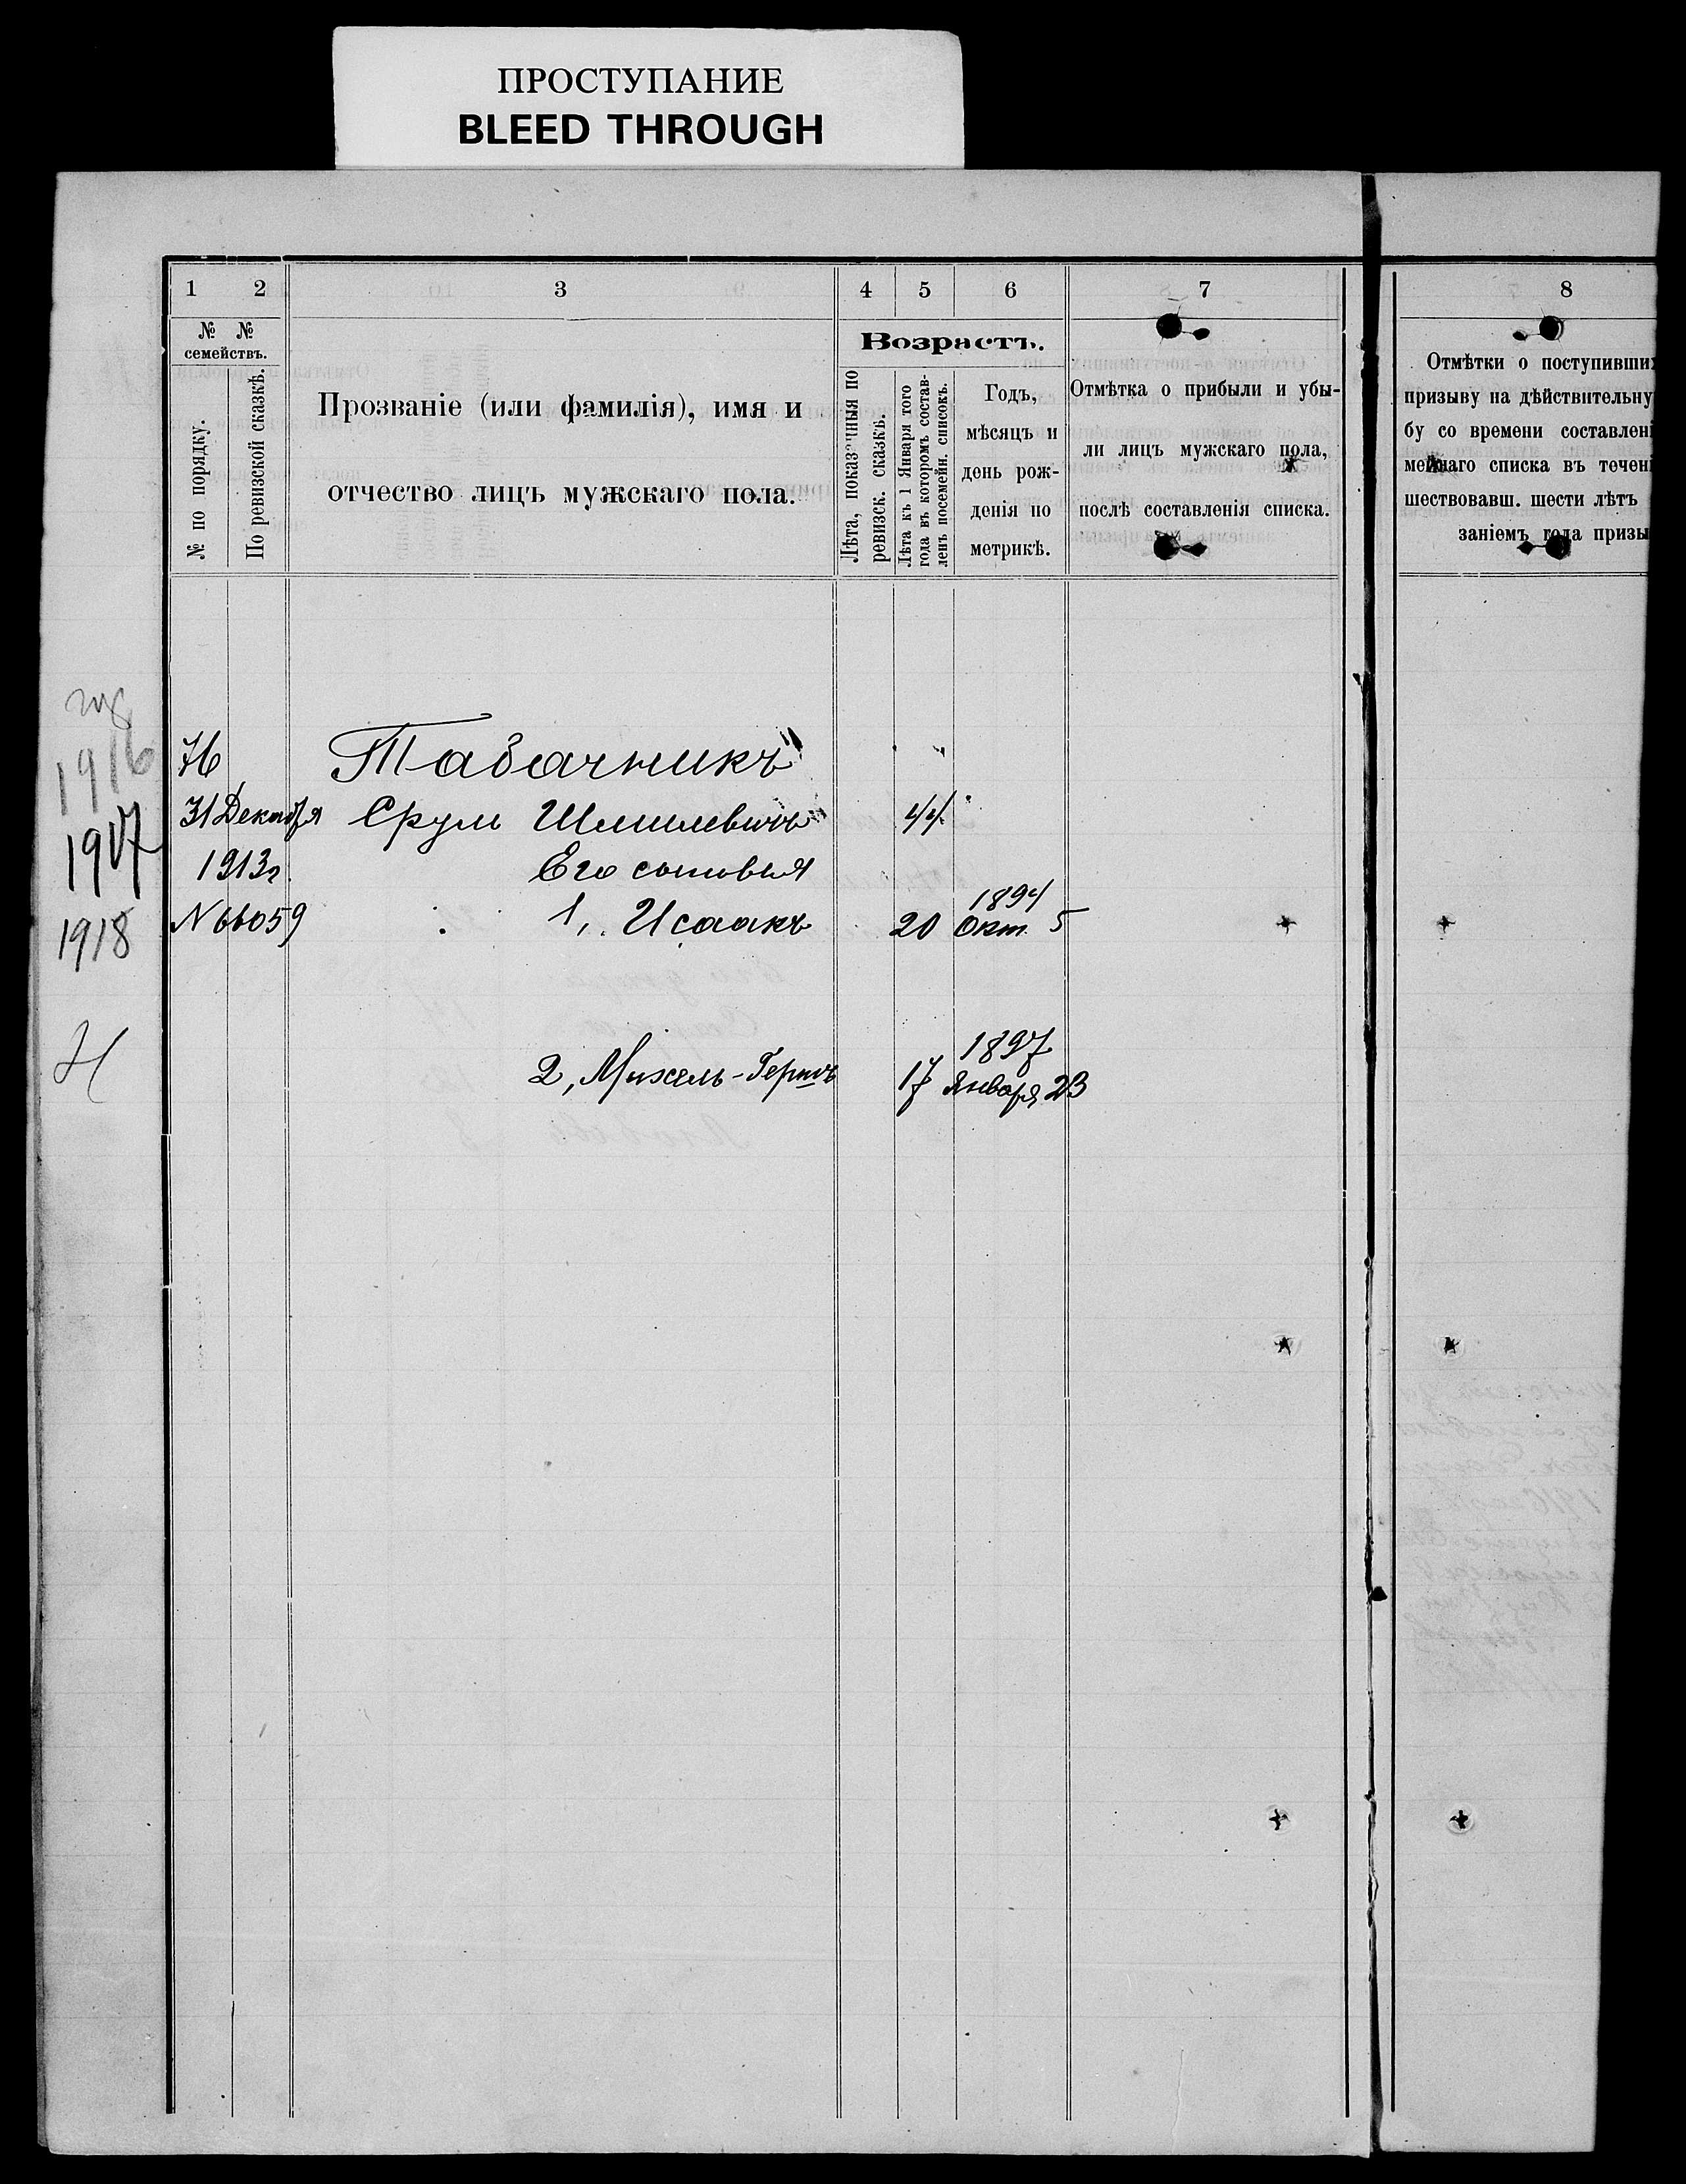 ПРОСТУПАНИЕ
BLEED THROUGH
1 2 3 4 5 6 7 8
№ № семействъ.
№ по порядку.
По ревизской сказкѣ.
Прозваніе (или фамилія), имя и
отчество лицъ мужскаго пола.
Возрастъ.
Лѣта, показанныя по
ревизск. сказкѣ.
Лѣта къ 1 Января того
года въ которомъ состав-
ленъ посемейн. списокъ.
Годъ,
мѣсяцъ и
день рож-
денія по
метрикѣ.
Отмѣтка о прибыли и убы-
ли лицъ мужскаго пола,
послѣ составленія списка.
Отмѣтки о поступивших
призыву на дѣйствительну
бу со времени составлені
мейнаго списка въ течені
шествовавш. шести лѣтъ
заніемъ года призы
1916
76 Табачникъ
1917
31 Декабря Срул Шмилевичъ 44
1913г. Его сыновья
1918
N 66059 1, Исаакъ 20 1894 Окт. 5
2, Михель-Гершъ 17 1897 Января 23